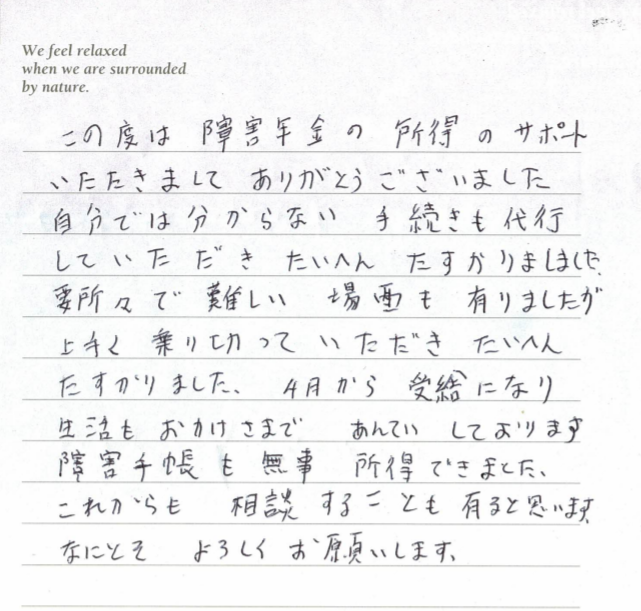 We feel relaxed
when we are surrounded
by nature.
この度は 障害年金の 所得の サポート
いただきまして ありがとうございました
自分では分からない 手続きも代行
していただき たいへん たすかりました。
要所々で 難しい 場面も 有りましたが
上手く 乗り切って いただき たいへん
たすかりました、 4月から 受給になり
生活も おかげさまで あんてい しております
障害手帳も 無事 所得できました、
これからも 相談 することも 有ると思います。
なにとぞ よろしく お願いします。